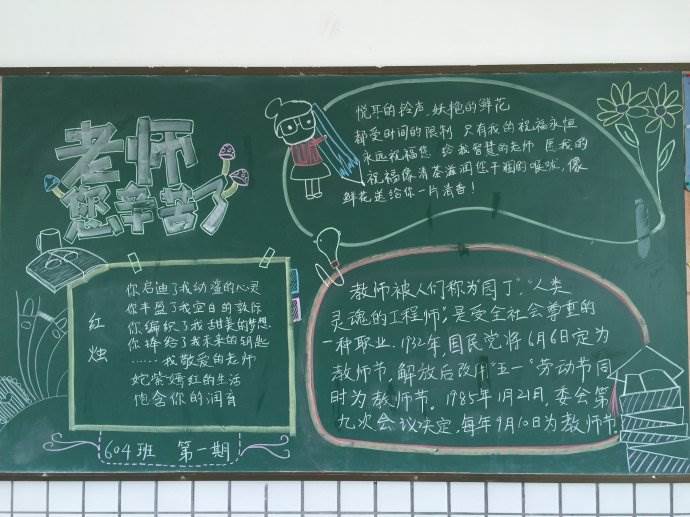 老师
您辛苦了
悦耳的铃声,妖艳的鲜花
都受时间的限制 只有我的祝福永恒
永远祝福您 给我智慧的老师 愿我的
祝福像清茶滋润您干涸的喉咙,像
鲜花送给你一片清香!
红烛
你启迪了我幼稚的心灵
你丰盈了我空白的
你编织了我甜美的梦想
你捧给了我未来的钥匙
……我敬爱的老师
姹紫嫣红的生活
饱含你的润育
604班 第一期
教师被人们称为"园丁"."人类
灵魂的工程师",是受全社会尊重的
一种职业.1932年,国民党将6月6日定为
教师节,解放后改用"五一"劳动节同
时为教师节。1985年1月21日,委会第
九次会议决定,每年9月10日为教师节